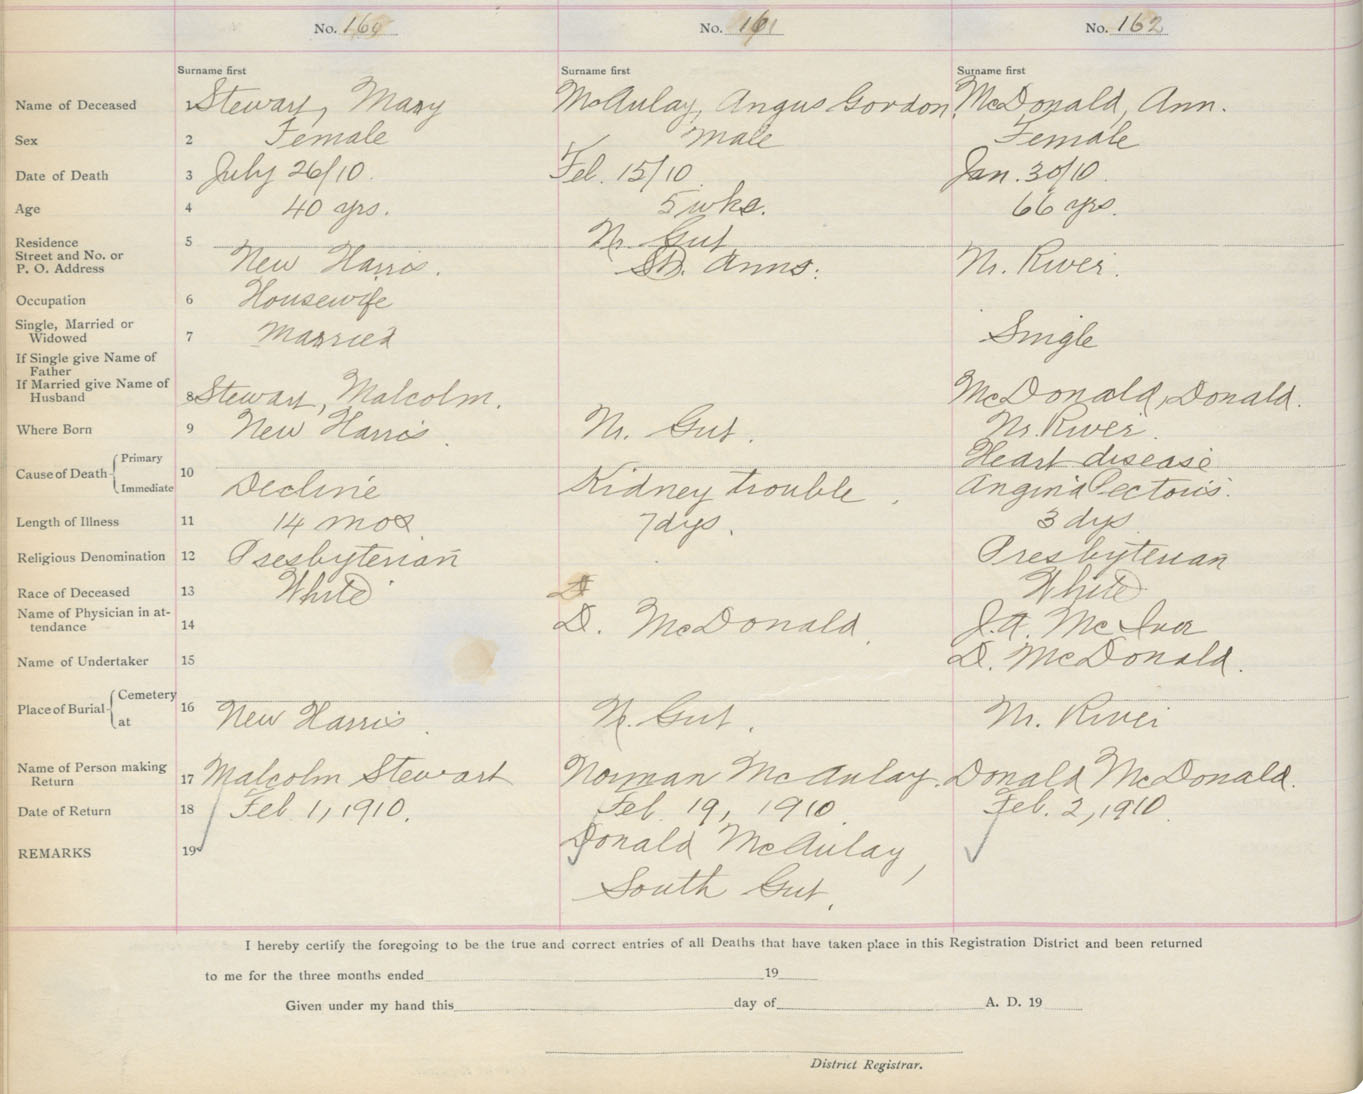 No. 160 No. 161 No. 162
Surname first Surname first Surname first
Name of Deceased 1 Stewart, Mary McAulay, Angus Gordon. McDonald, Ann.
Sex 2 Female Male Female
Date of Death 3 July 26/10. Feb. 15/10 Jan. 30/10.
Age 4 40 yrs. 5 wks. 66 yrs.
Residence 5 N. Gut
Street and No. or
P. O. Address New Harris. St. Anns. N. River.
Occupation 6 Housewife
Single, Married or
Widowed 7 Married Single
If Single give Name of
Father
If Married give Name of
Husband 8 Stewart, Malcolm. McDonald, Donald.
Where Born 9 New Harris. N. Gut. N. River.
Cause of Death Primary 10 Heart disease
Immediate Decline Kidney trouble. Angina Pectoris.
Length of Illness 11 14 mos 7 dys. 3 dys
Religious Denomination 12 Presbyterian Presbyterian
Race of Deceased 13 White D White
Name of Physician in at-
tendance 14 D. McDonald. J.A. McIver
Name of Undertaker 15 D. McDonald.
Place of Burial Cemetery 16
at New Harris. N. Gut. N. River
Name of Person making
Return 17 Malcolm Stewart Norman McAulay. Donald McDonald.
Date of Return 18 Feb. 1, 1910. Feb. 19, 1910. Feb. 2, 1910.
REMARKS 19 Donald McAulay,
South Gut.
I hereby certify the foregoing to be the true and correct entries of all Deaths that have taken place in this Registration District and been returned
to me for the three months ended 19
Given under my hand this day of A. D. 19
District Registrar.